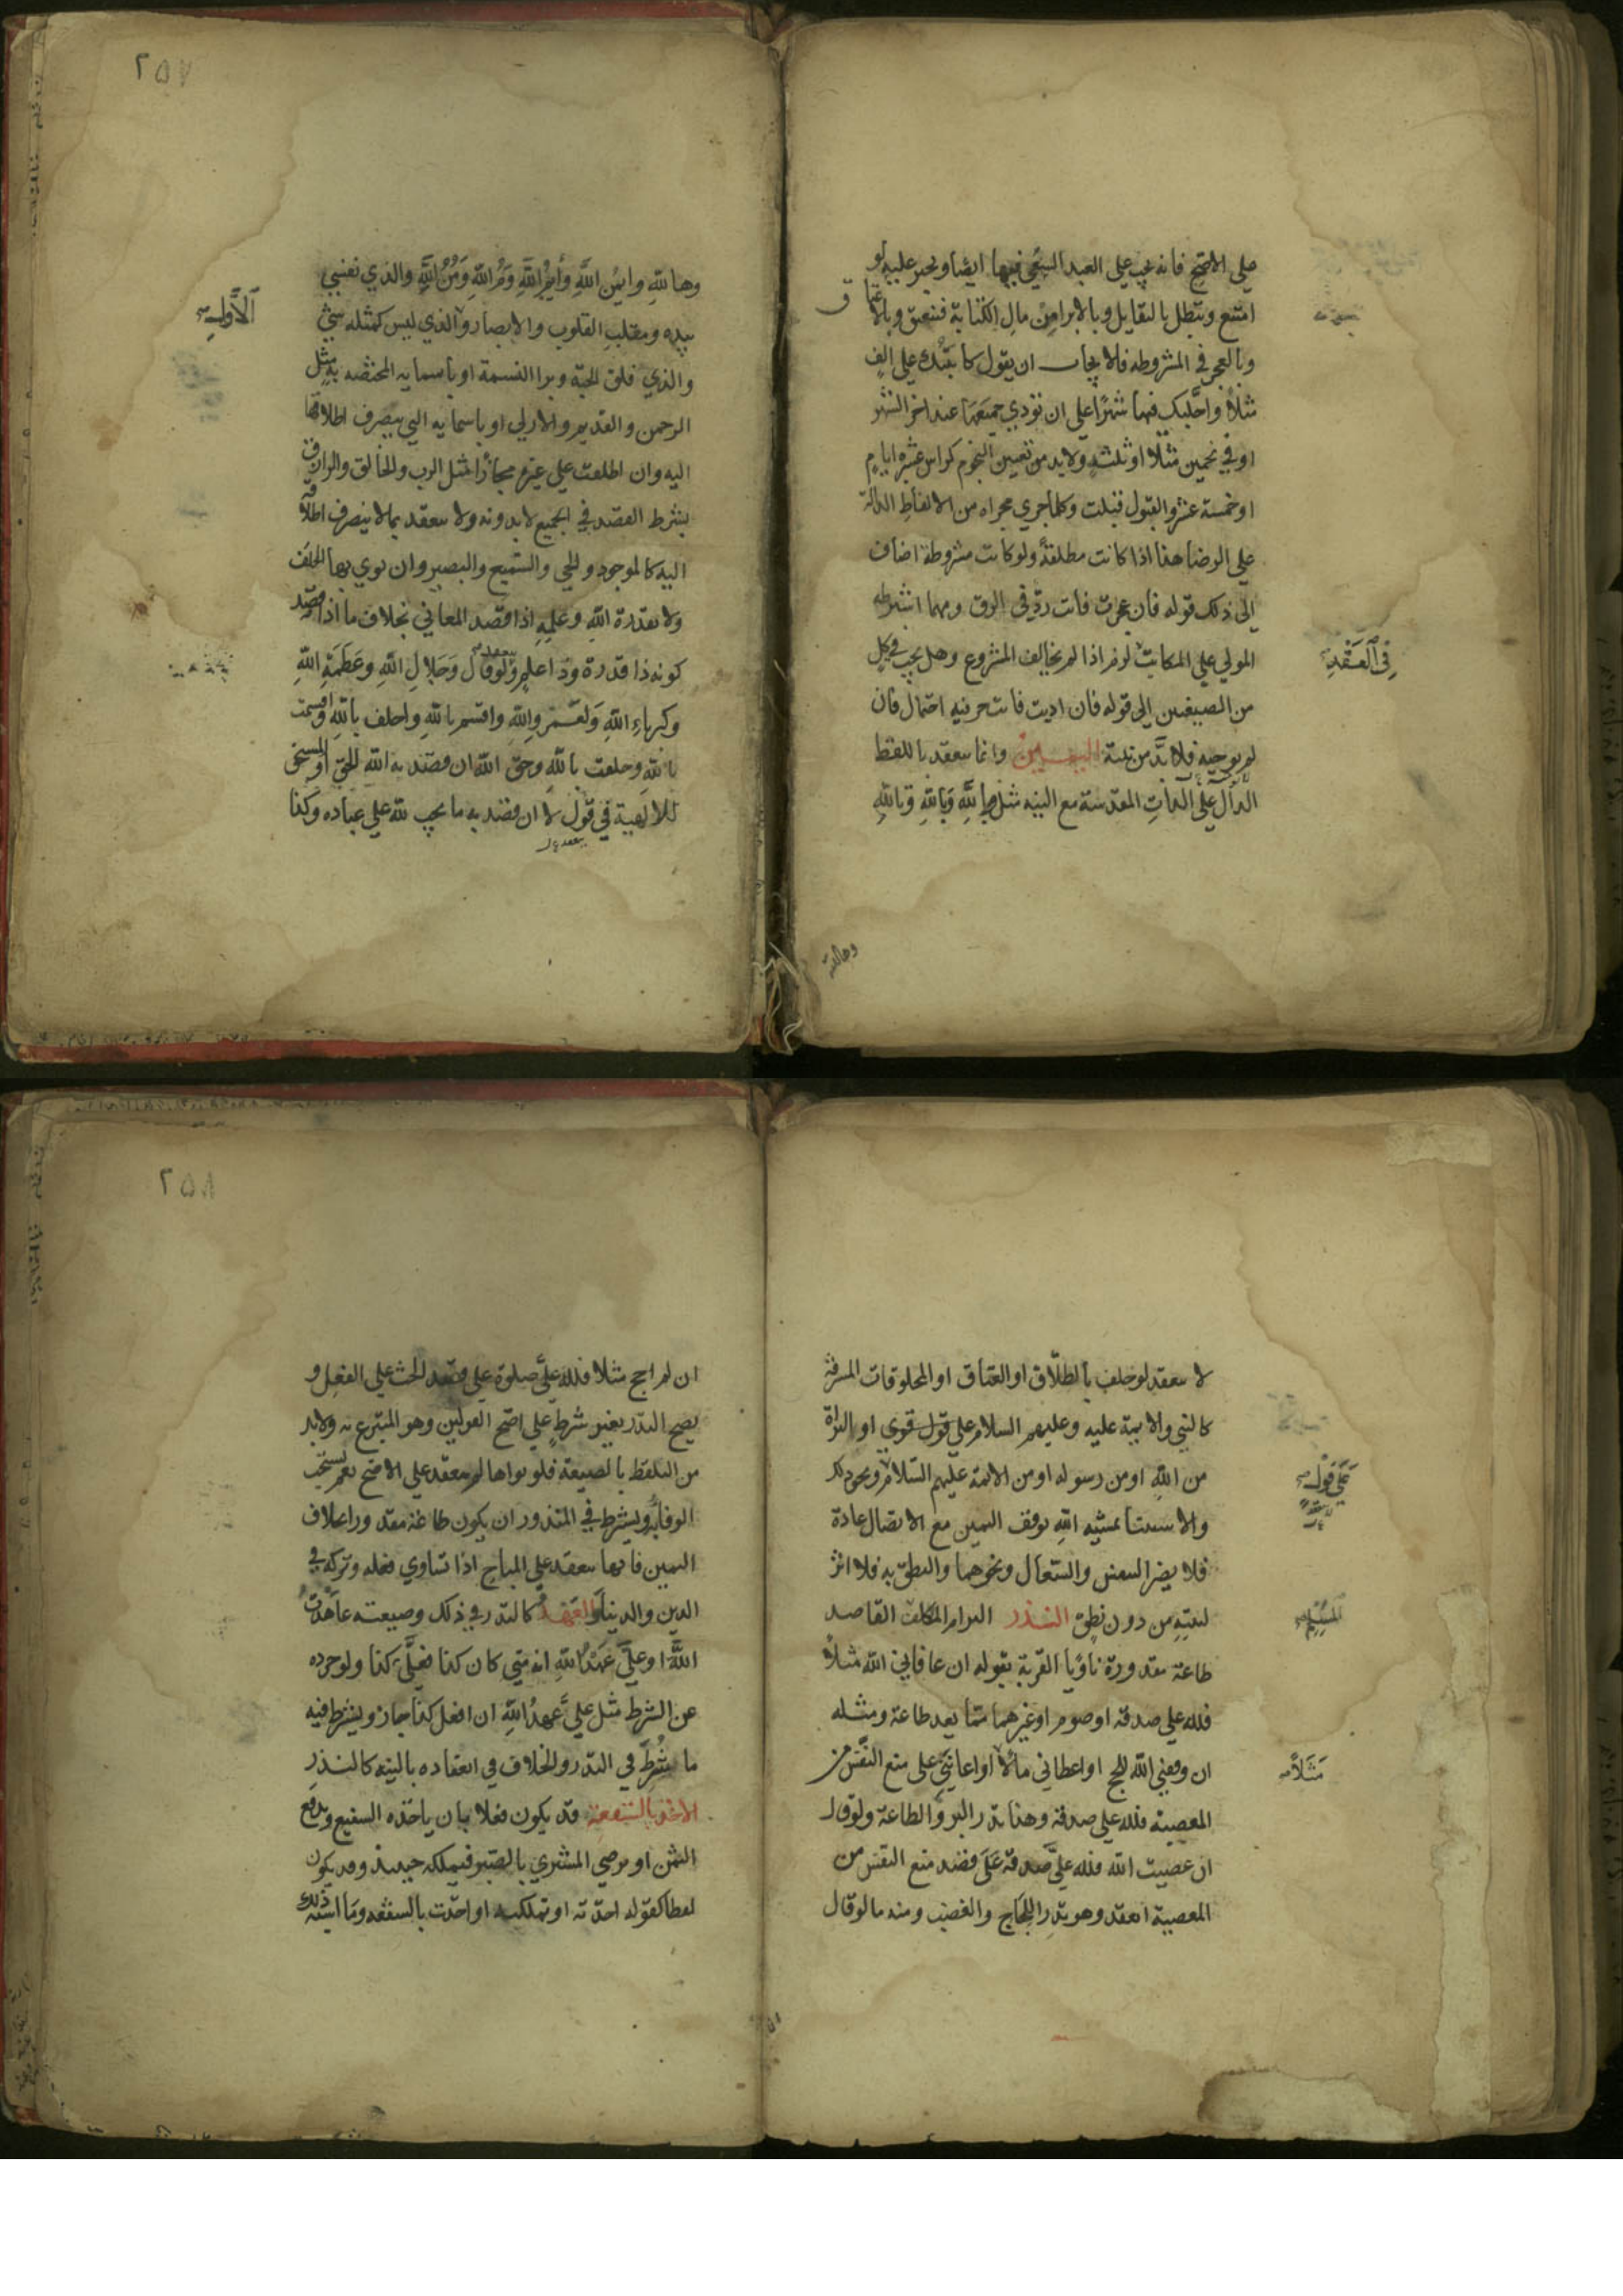 علي الاصح فانه يجب علي العبد السعي فيها ايضا ويجبر عليه لو
امتنع وتبطل بالتقايل وبالابراء من مال الكتابة فينعتق وبالاعتاق
وبالعجز في المشروطه فالايجاب ان يقول كاتبتك علي الف
مثلاً واجلتك فيها شهرًا علي ان تؤدي جميعها عند اخر الشهر
او في نجمين مثلا او ثلثه ولابد من تعيين النجوم كراس عشرة ايام
او خمسة عشر والقبول قبلت وكلما جري مجراه من الالفاظ الدالة
علي الرضا هذا اذا كانت مطلقةً ولو كانت مشروطة اضاف
الي ذلك قوله فان عجزت فانت رد في الرق ومهما اشترطه
المولي علي المكاتب لزم اذا لم يخالف المشروع وهل يجب في كل
في العقد
من الصيغتين الي قوله فان اديت فانت حر فيه احتمال فان
لم نوجبه فلا بد من نيته اليمين وانما ينعقد باللفظ
الدال علي الذات المقدسة مع النية مثل والله وبالله وتالله
وهاالله
٢٥٧
وهاالله وايمن الله وأيم الله وم الله ومن الله والذي نفسي
الأولي
بيده ومقلب القلوب والابصار والذي ليس كمثله شيء
والذي فلق الحبة وبرا النسمة او باسمايه المختصه به مثل
الرحمن والقديم والازلي او باسمايه التي ينصرف اطلاقها
اليه وان اطلقت علي غيره مجازًا مثل الرب والخالق والرازق
بشرط القصد في الجميع لا بدونه ولا ينعقد بما لا ينصرف اطلاقه
اليه كالموجود والحي والسميع والبصير وان نوي بها الحلف
ولا بقدرة الله وعلمه اذا قصد المعاني بخلاف ما اذا قصد
كونه ذا قدرة وذا علم ولو قال وجلال الله وعظمة الله
وكبرياء الله ولعمر الله واقسم بالله واحلف بالله واقسمت
بالله وحلفت بالله وحق الله ان قصد به الله الحق او المستحق
للالهية في قول لا ان قصد به ما يجب لله علي عباده وكذا
لا ينعقد لو حلف بالطلاق او العتاق او المخلوقات المشرفة
كالنبي والايمة عليه وعليهم السلام علي قول قوي او البراة
من الله او من رسوله او من الائمة عليهم السلام ونحو ذلك
علي قول
والاستثنا بمشيه الله يوقف اليمين مع الاتصال عادة
فلا يضر التنفس والسعال ونحوهما والنطق به فلا اثر
لنيته من دون نطق النذر التزام المكلف القاصد
المسلم
طاعة مقدورة ناويا القربة بقوله ان عافاني الله مثلا
فلله علي صدقه او صوم او غيرهما مما يعد طاعة ومثله
ان وفقني الله للحج او اعطاني مالا او اعانني علي منع النفس من
مثلاً
المعصية فلله علي صدقة وهذا نذر البر والطاعة ولو قال
ان عصيت الله فلله علي صدقة علي قصد منع النفس من
المعصية انعقد وهو نذر اللجاج والغضب ومنه ما لو قال
ان
٢٥٨
ان لم احج مثلا فلله علي صلوة علي قصد الحث علي الفعل و
يصح النذر بغير شرط علي اصح القولين وهو المتبرع به ولابد
من التلفظ بالصيغة فلو نواها لم ينعقد علي الاصح نعم يستحب
الوفا به ويشترط في المنذور ان يكون طاعة مقدورا بخلاف
اليمين فانها تنعقد علي المباح اذا تساوي فعله وتركه في
الدين والدنيا والعهد كالنذر في ذلك وصيغته عاهدت
الله او علي عهد الله انه متي كان كذا فعلي كذا ولو جرده
عن الشرط مثل علي عهد الله ان افعل كذا جاز ويشترط فيه
ما يشترط في النذر والخلاف في انعقاده بالنيه كالنذر
الاخذ بالشفعة قد يكون فعلا بان ياخذه الشفيع ويدفع
الثمن او يرضي المشتري بالصبر فيملكه حينئذ وقد يكون
لفظا كقوله اخذته او تملكته او اخذت بالشفعه وما اشبه ذلك